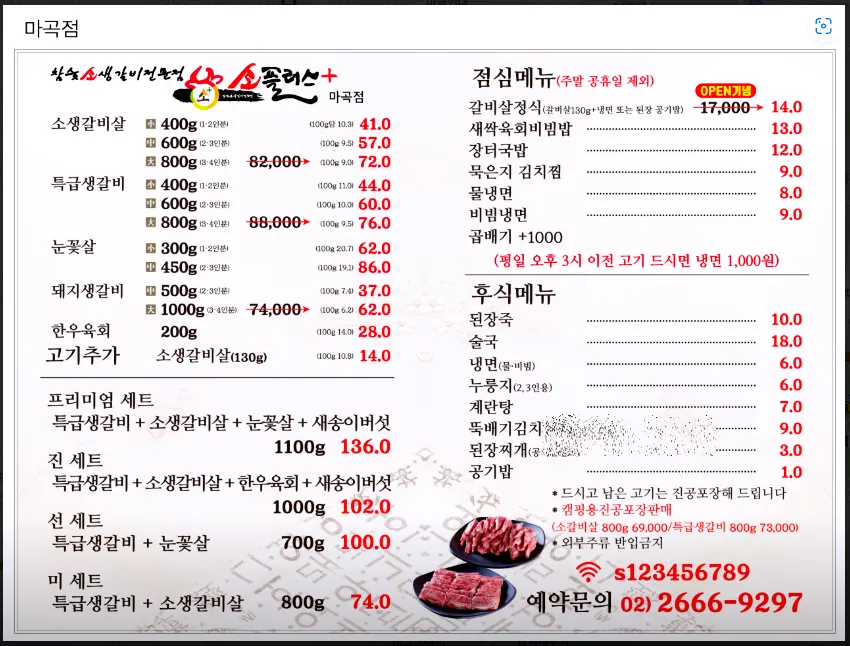 마곡점
참숯 소생갈비전문점 소플러스+
마곡점
소생갈비살 小 400g (1·2인분) (100g당 10.3) 41.0
中 600g (2·3인분) (100g 9.5) 57.0
大 800g (3·4인분) 82,000 (100g 9.0) 72.0
특급생갈비 小 400g (1·2인분) (100g 11.0) 44.0
中 600g (2·3인분) (100g 10.0) 60.0
大 800g (3·4인분) 88,000 (100g 9.5) 76.0
눈꽃살 小 300g (1·2인분) (100g 20.7) 62.0
中 450g (2·3인분) (100g 19.1) 86.0
돼지생갈비 中 500g (2·3인분) (100g 7.4) 37.0
大 1000g (3·4인분) 74,000 (100g 6.2) 62.0
한우육회 200g (100g 14.0) 28.0
고기추가 소생갈비살(130g) (100g 10.8) 14.0
프리미엄 세트
특급생갈비 + 소생갈비살 + 눈꽃살 + 새송이버섯
1100g 136.0
진 세트
특급생갈비 + 소생갈비살 + 한우육회 + 새송이버섯
1000g 102.0
선 세트
특급생갈비 + 눈꽃살 700g 100.0
미 세트
특급생갈비 + 소생갈비살 800g 74.0
점심메뉴(주말 공휴일 제외)
OPEN기념
갈비살정식(갈비살130g+냉면 또는 된장 공기밥) 17,000 14.0
새싹육회비빔밥 13.0
장터국밥 12.0
묵은지 김치찜 9.0
물냉면 8.0
비빔냉면 9.0
곱배기 +1000
(평일 오후 3시 이전 고기 드시면 냉면 1,000원)
후식메뉴
된장죽 10.0
술국 18.0
냉면(물·비빔) 6.0
누룽지(2,3인용) 6.0
계란탕 7.0
뚝배기김치 9.0
된장찌개(공 3.0
공기밥 1.0
* 드시고 남은 고기는 진공포장해 드립니다
* 캠핑용진공포장판매
(소갈비살 800g 69,000/특급생갈비 800g 73,000)
* 외부주류 반입금지
s123456789
예약문의 02) 2666-9297